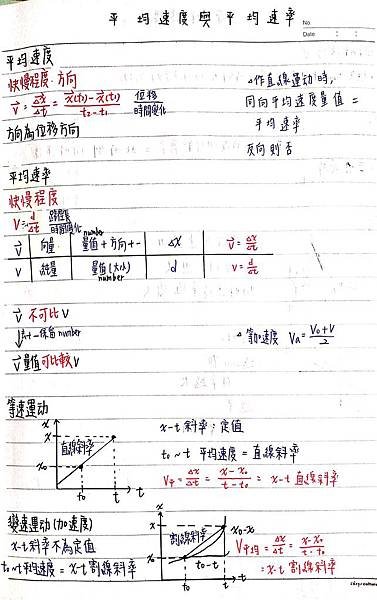 平均速度與平均速率
No
Date : :
平均速度
快慢程度、方向
v = Δx/Δt = x(t₂)-x(t₁)/t₂-t₁ 位移/時間變化
方向為位移方向
△作直線運動時,
同向平均速度量值=
平均速率
反向則否
平均速率
快慢程度
v = d/Δt 路徑長/時間變化
v 向量 number 量值+方向+- Δx v = Δx/Δt
v 純量 量值(大小) number d v = d/Δt
v 不可比 v
↓去+-保留number
v量值可比較v
△等加速度 Va = V₀+V/2
等速運動
x
x
x₀
直線斜率
t₀ t t
x-t 斜率:定值
t₀~t 平均速度=直線斜率
V平 = Δx/Δt = x-x₀/t-t₀ = x-t 直線斜率
變速運動(加速度)
x-t斜率不為定值
t₀~t平均速度=x-t割線斜率
x
x
x₀
割線斜率
x₀-x
t₀-t
t₀ t t
V平均 = Δx/Δt = x-x₀/t-t₀
= x-t 割線斜率